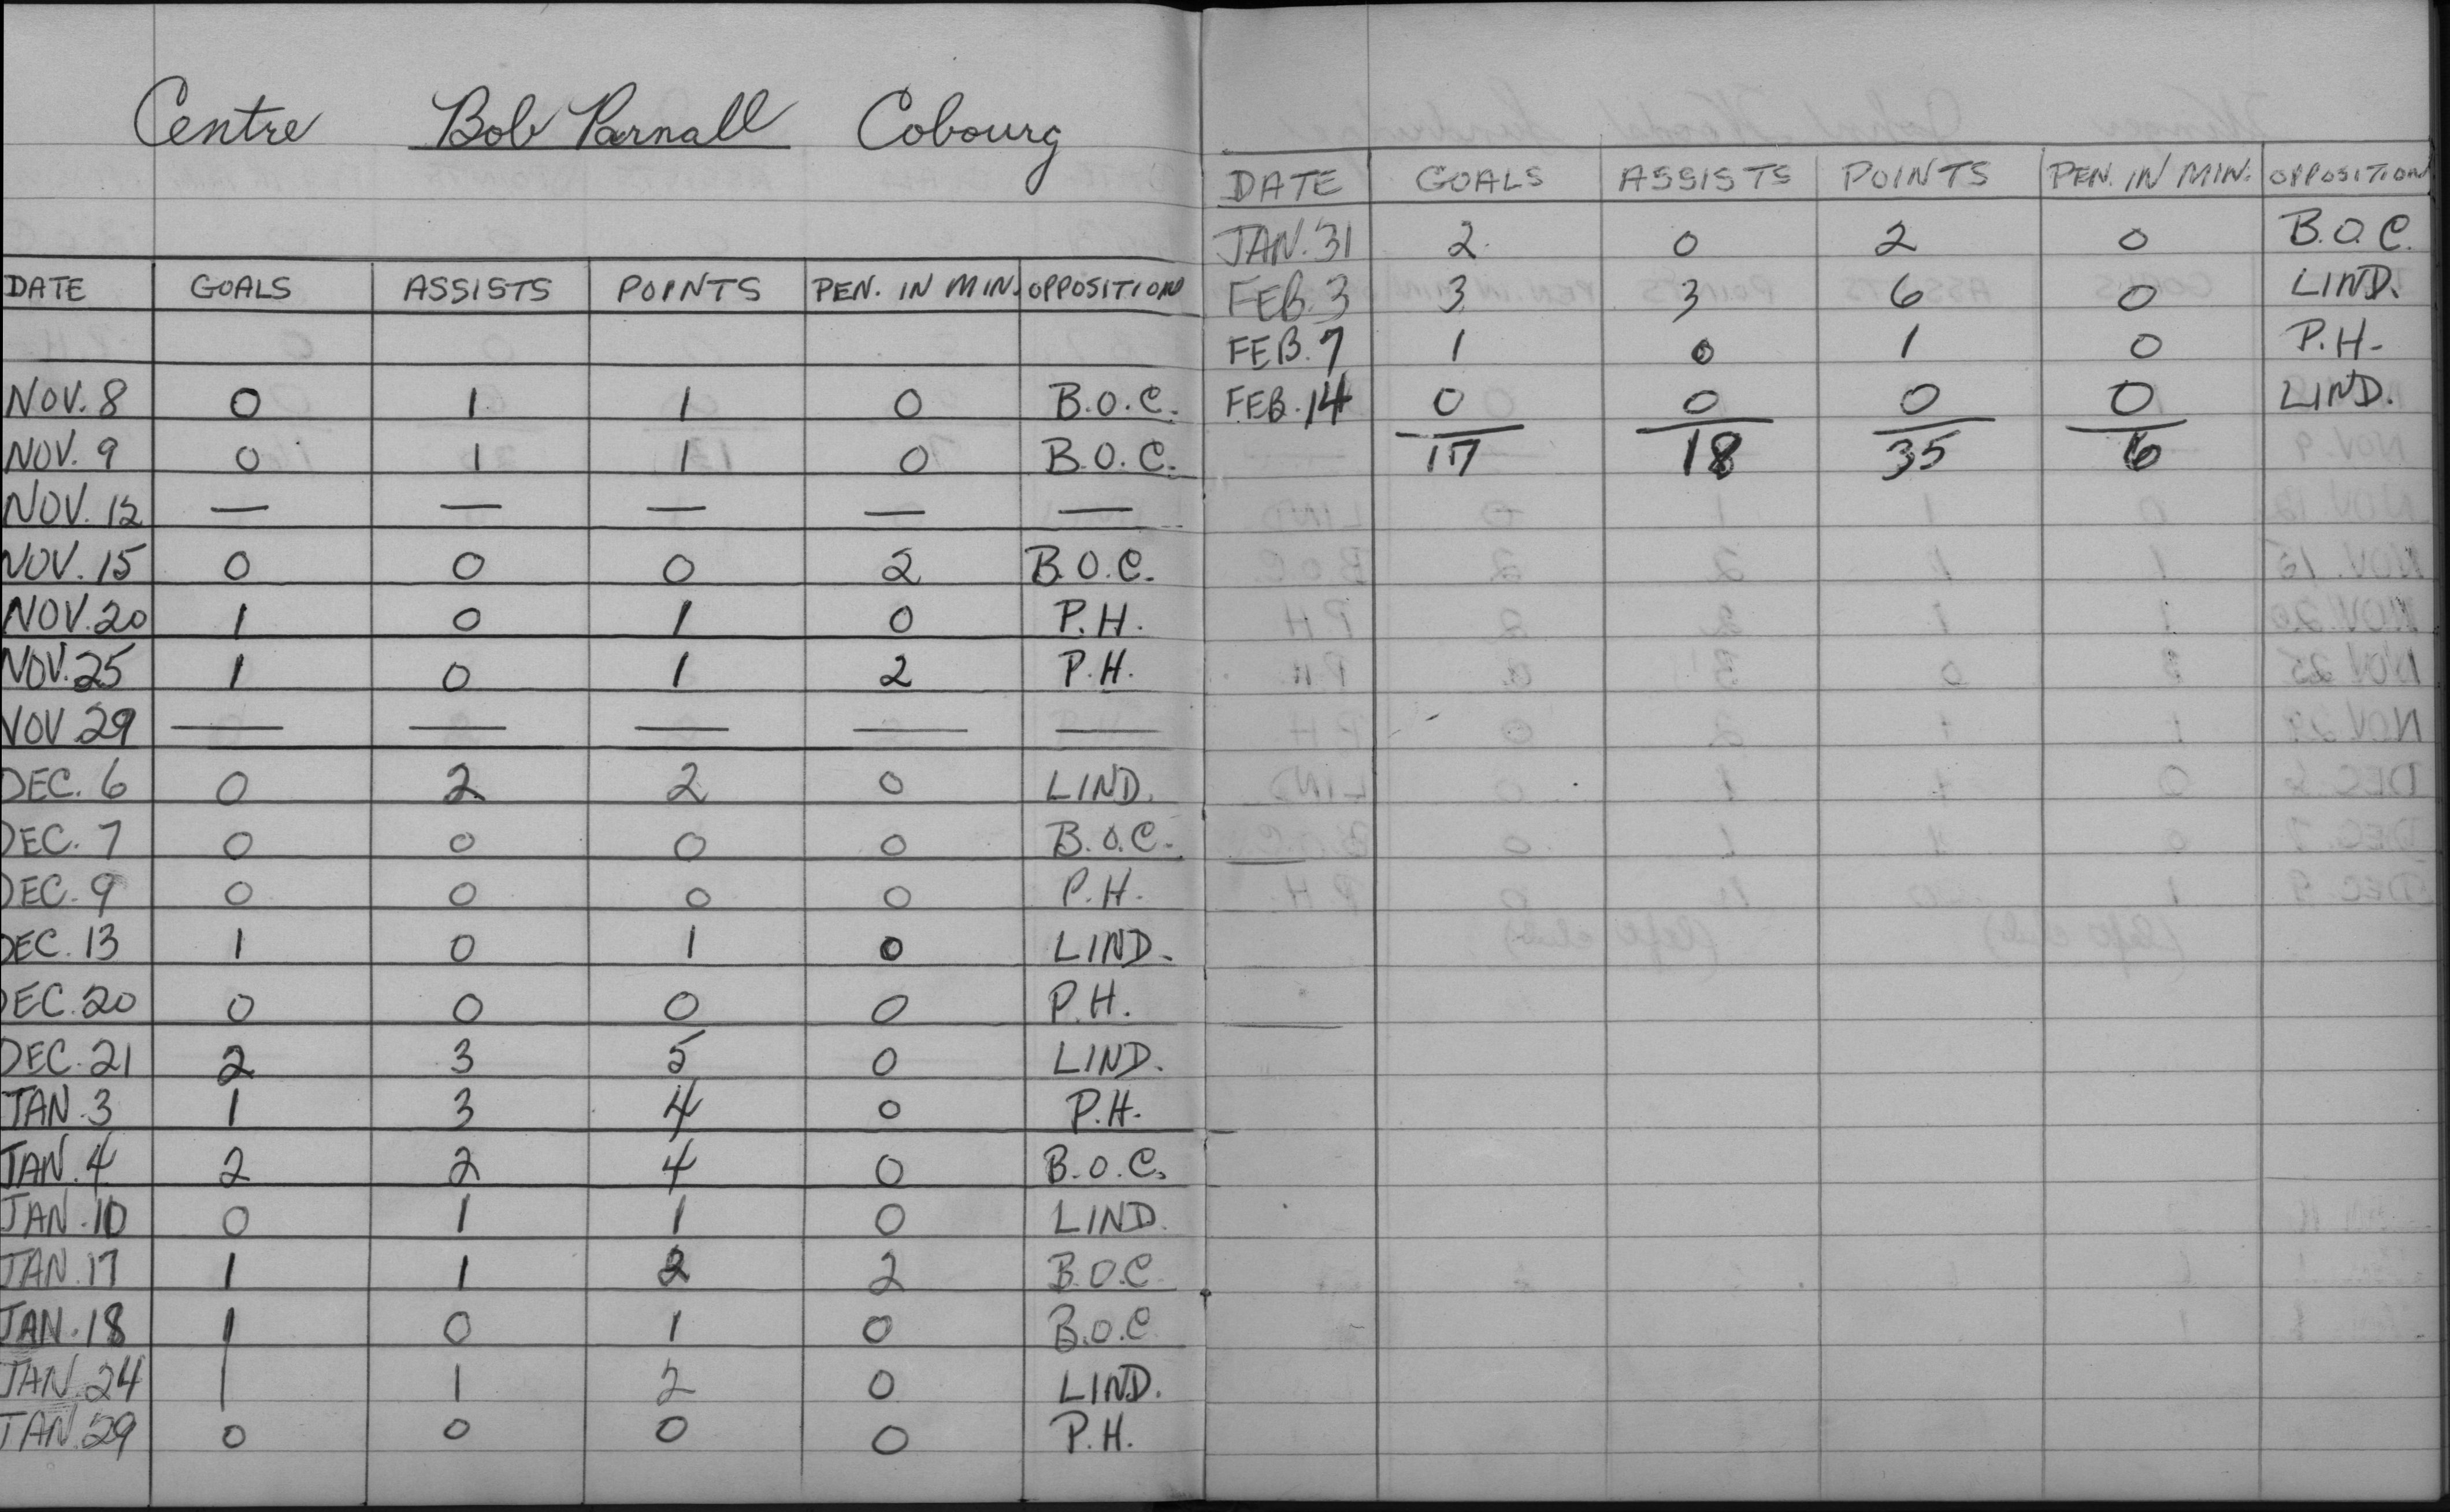 Centre Bob Parnall Cobourg
DATE GOALS ASSISTS POINTS PEN. IN MIN. OPPOSITION
NOV. 8 0 1 1 0 B.O.C.
NOV. 9 0 1 1 0 B.O.C.
NOV. 12 — — — — —
NOV. 15 0 0 0 2 B.O.C.
NOV. 20 1 0 1 0 P.H.
NOV. 25 1 0 1 2 P.H.
NOV 29 — — — — —
DEC. 6 0 2 2 0 LIND.
DEC. 7 0 0 0 0 B.O.C.
DEC. 9 0 0 0 0 P.H.
DEC. 13 1 0 1 0 LIND.
DEC. 20 0 0 0 0 P.H.
DEC. 21 2 3 5 0 LIND.
JAN. 3 1 3 4 0 P.H.
JAN. 4 2 2 4 0 B.O.C.
JAN. 10 0 1 1 0 LIND.
JAN. 17 1 1 2 2 B.O.C
JAN. 18 1 0 1 0 B.O.C
JAN. 24 1 1 2 0 LIND.
JAN. 29 0 0 0 0 P.H.
DATE GOALS ASSISTS POINTS PEN. IN MIN. OPPOSITION
JAN. 31 2 0 2 0 B.O.C.
FEB. 3 3 3 6 0 LIND.
FEB. 7 1 0 1 0 P.H.
FEB. 14 0 0 0 0 LIND.
17 18 35 6